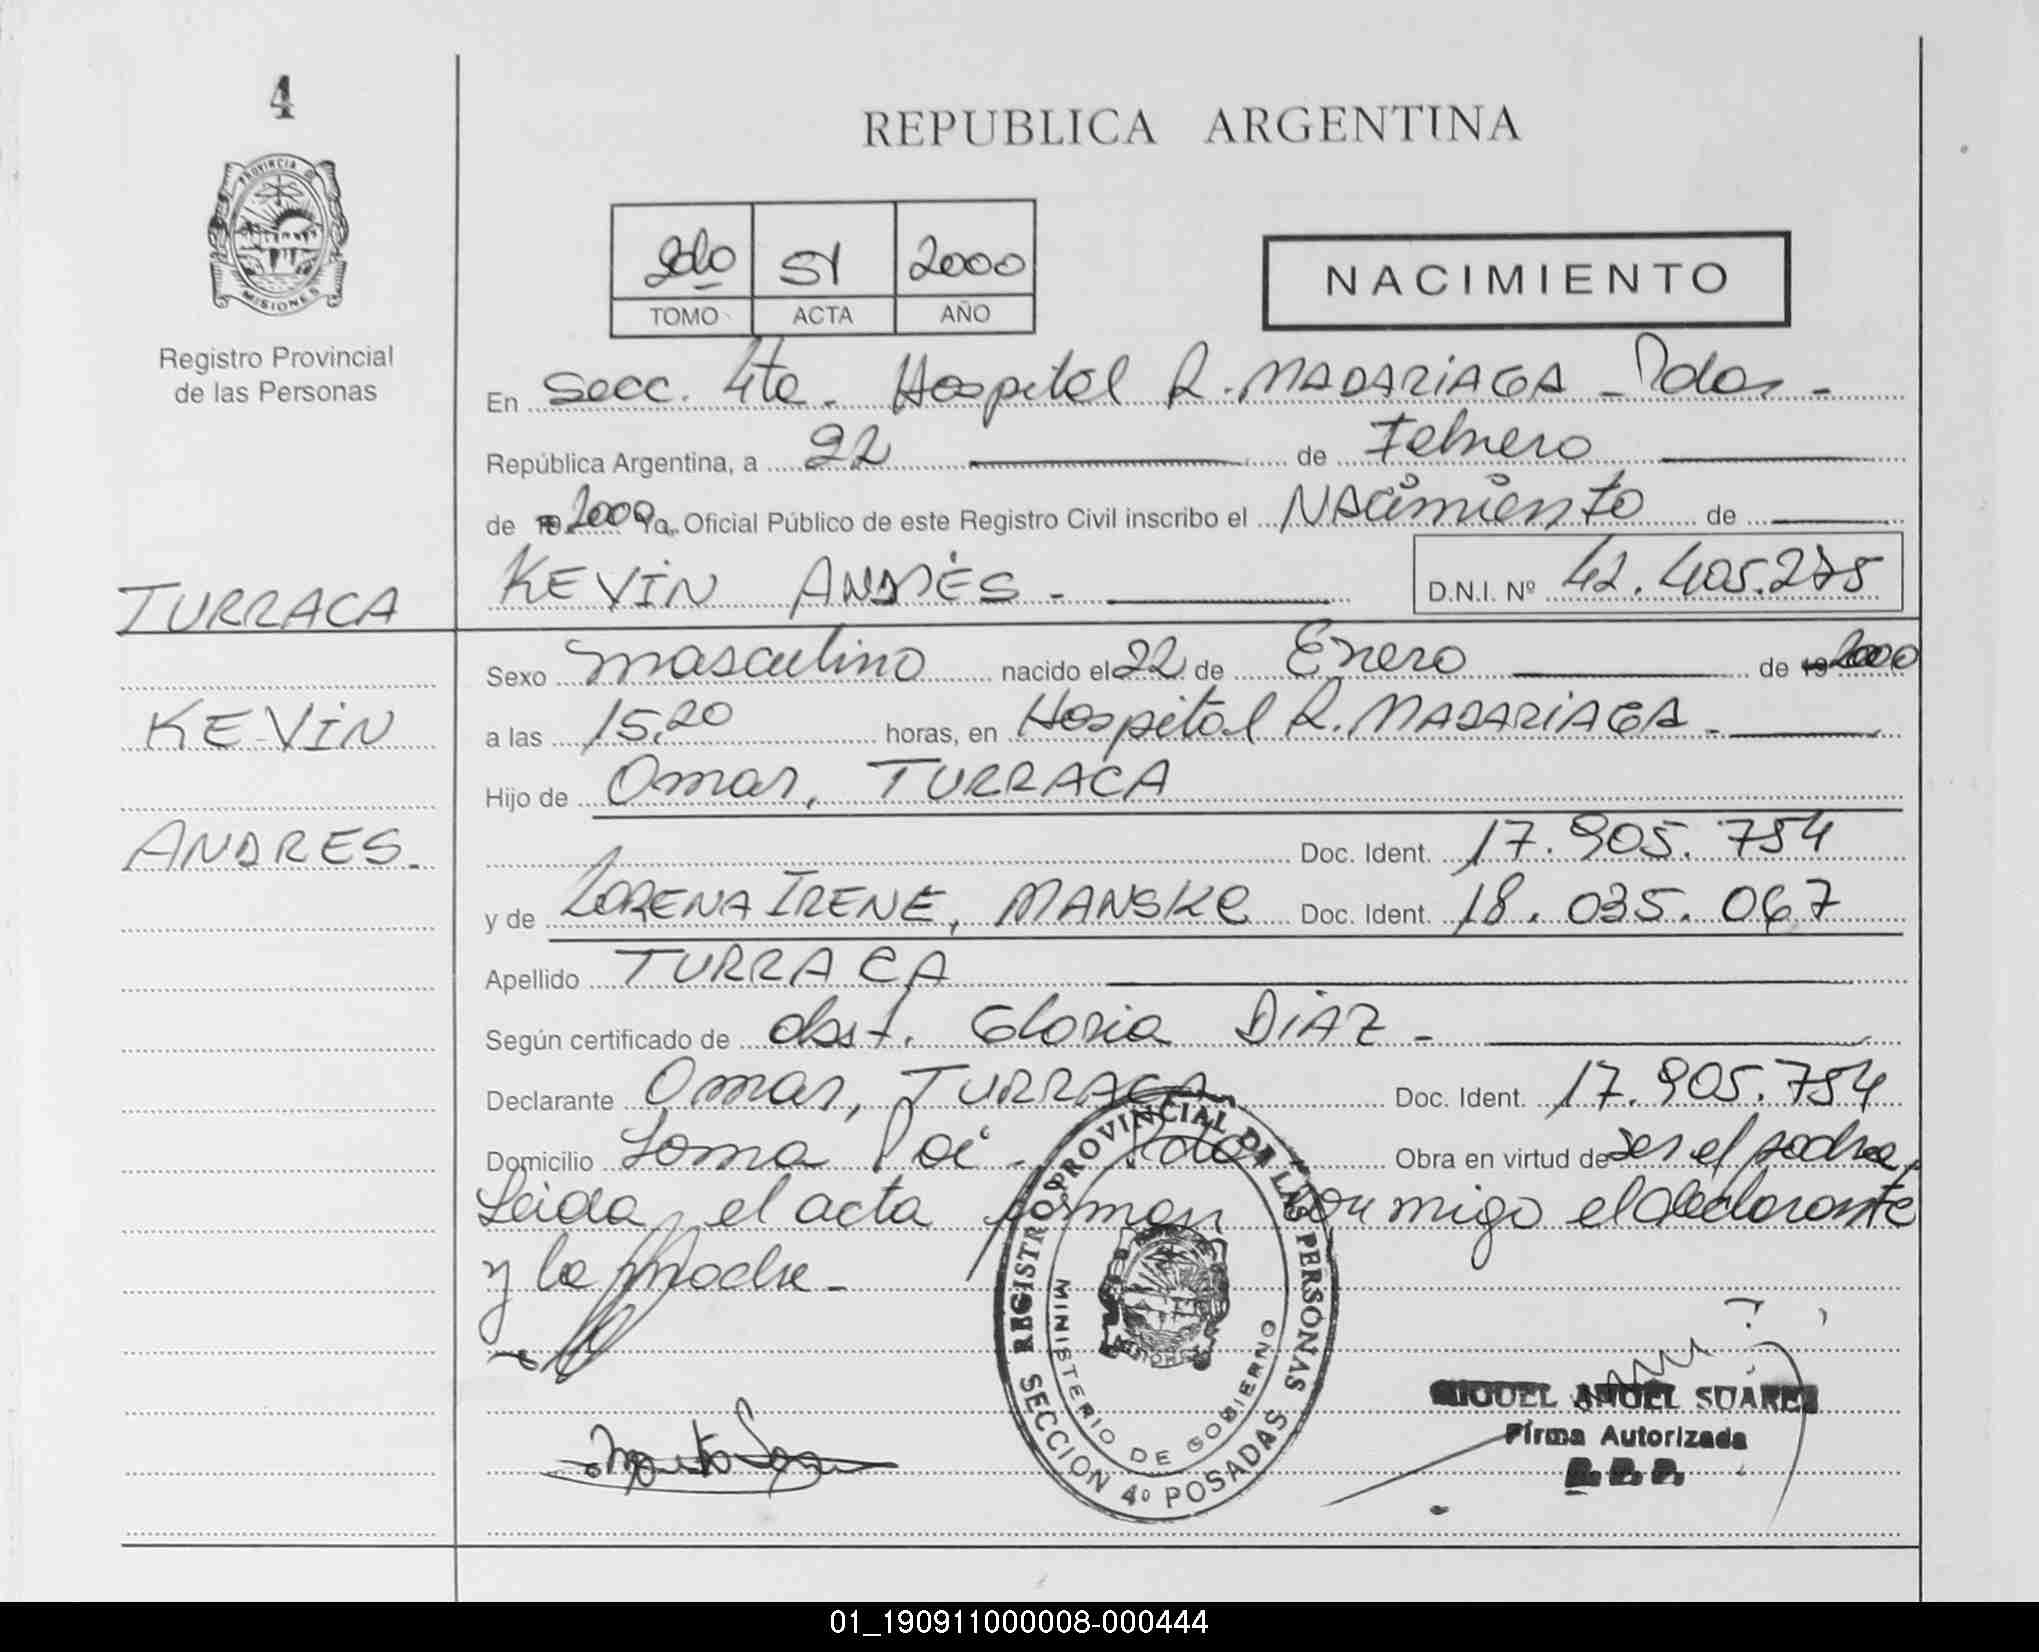 4
REPUBLICA ARGENTINA
PROVINCIA DE
MISIONES
Registro Provincial
de las Personas
2do 51 2000
TOMO ACTA AÑO
NACIMIENTO
En Secc. 4ta. Hospital R. MADARIAGA - Pdas -
República Argentina, a 22 de Febrero
de 2000 Yo, Oficial Público de este Registro Civil inscribo el NAcimiento de
TURRACA
KEVIN ANDRÉS - D.N.I. Nº 42.405.275
Sexo masculino nacido el 22 de Enero de 19 2000
KEVIN
a las 15,20 horas, en Hospital R. MADARIAGA -
Hijo de Omar, TURRACA
ANDRES.
Doc. Ident. 17.905.754
y de LORENA IRENE, MANSKE Doc. Ident. 18.035.067
Apellido TURRACA
Según certificado de obst. Gloria DIAZ -
Declarante Omar, TURRACA Doc. Ident. 17.905.754
Domicilio Loma Poi - Pdas Obra en virtud de ser el padre,
Leida el acta firman conmigo el declarante
y la madre -
REGISTRO PROVINCIAL DE LAS PERSONAS
MINISTERIO DE GOBIERNO
SECCION 4º POSADAS
MIGUEL ANGEL SUAREZ
Firma Autorizada
R. P. P.
01_190911000008-000444